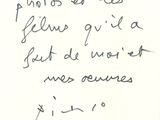 photos et les
films qu'il a
fait de moi et
mes oeuvres